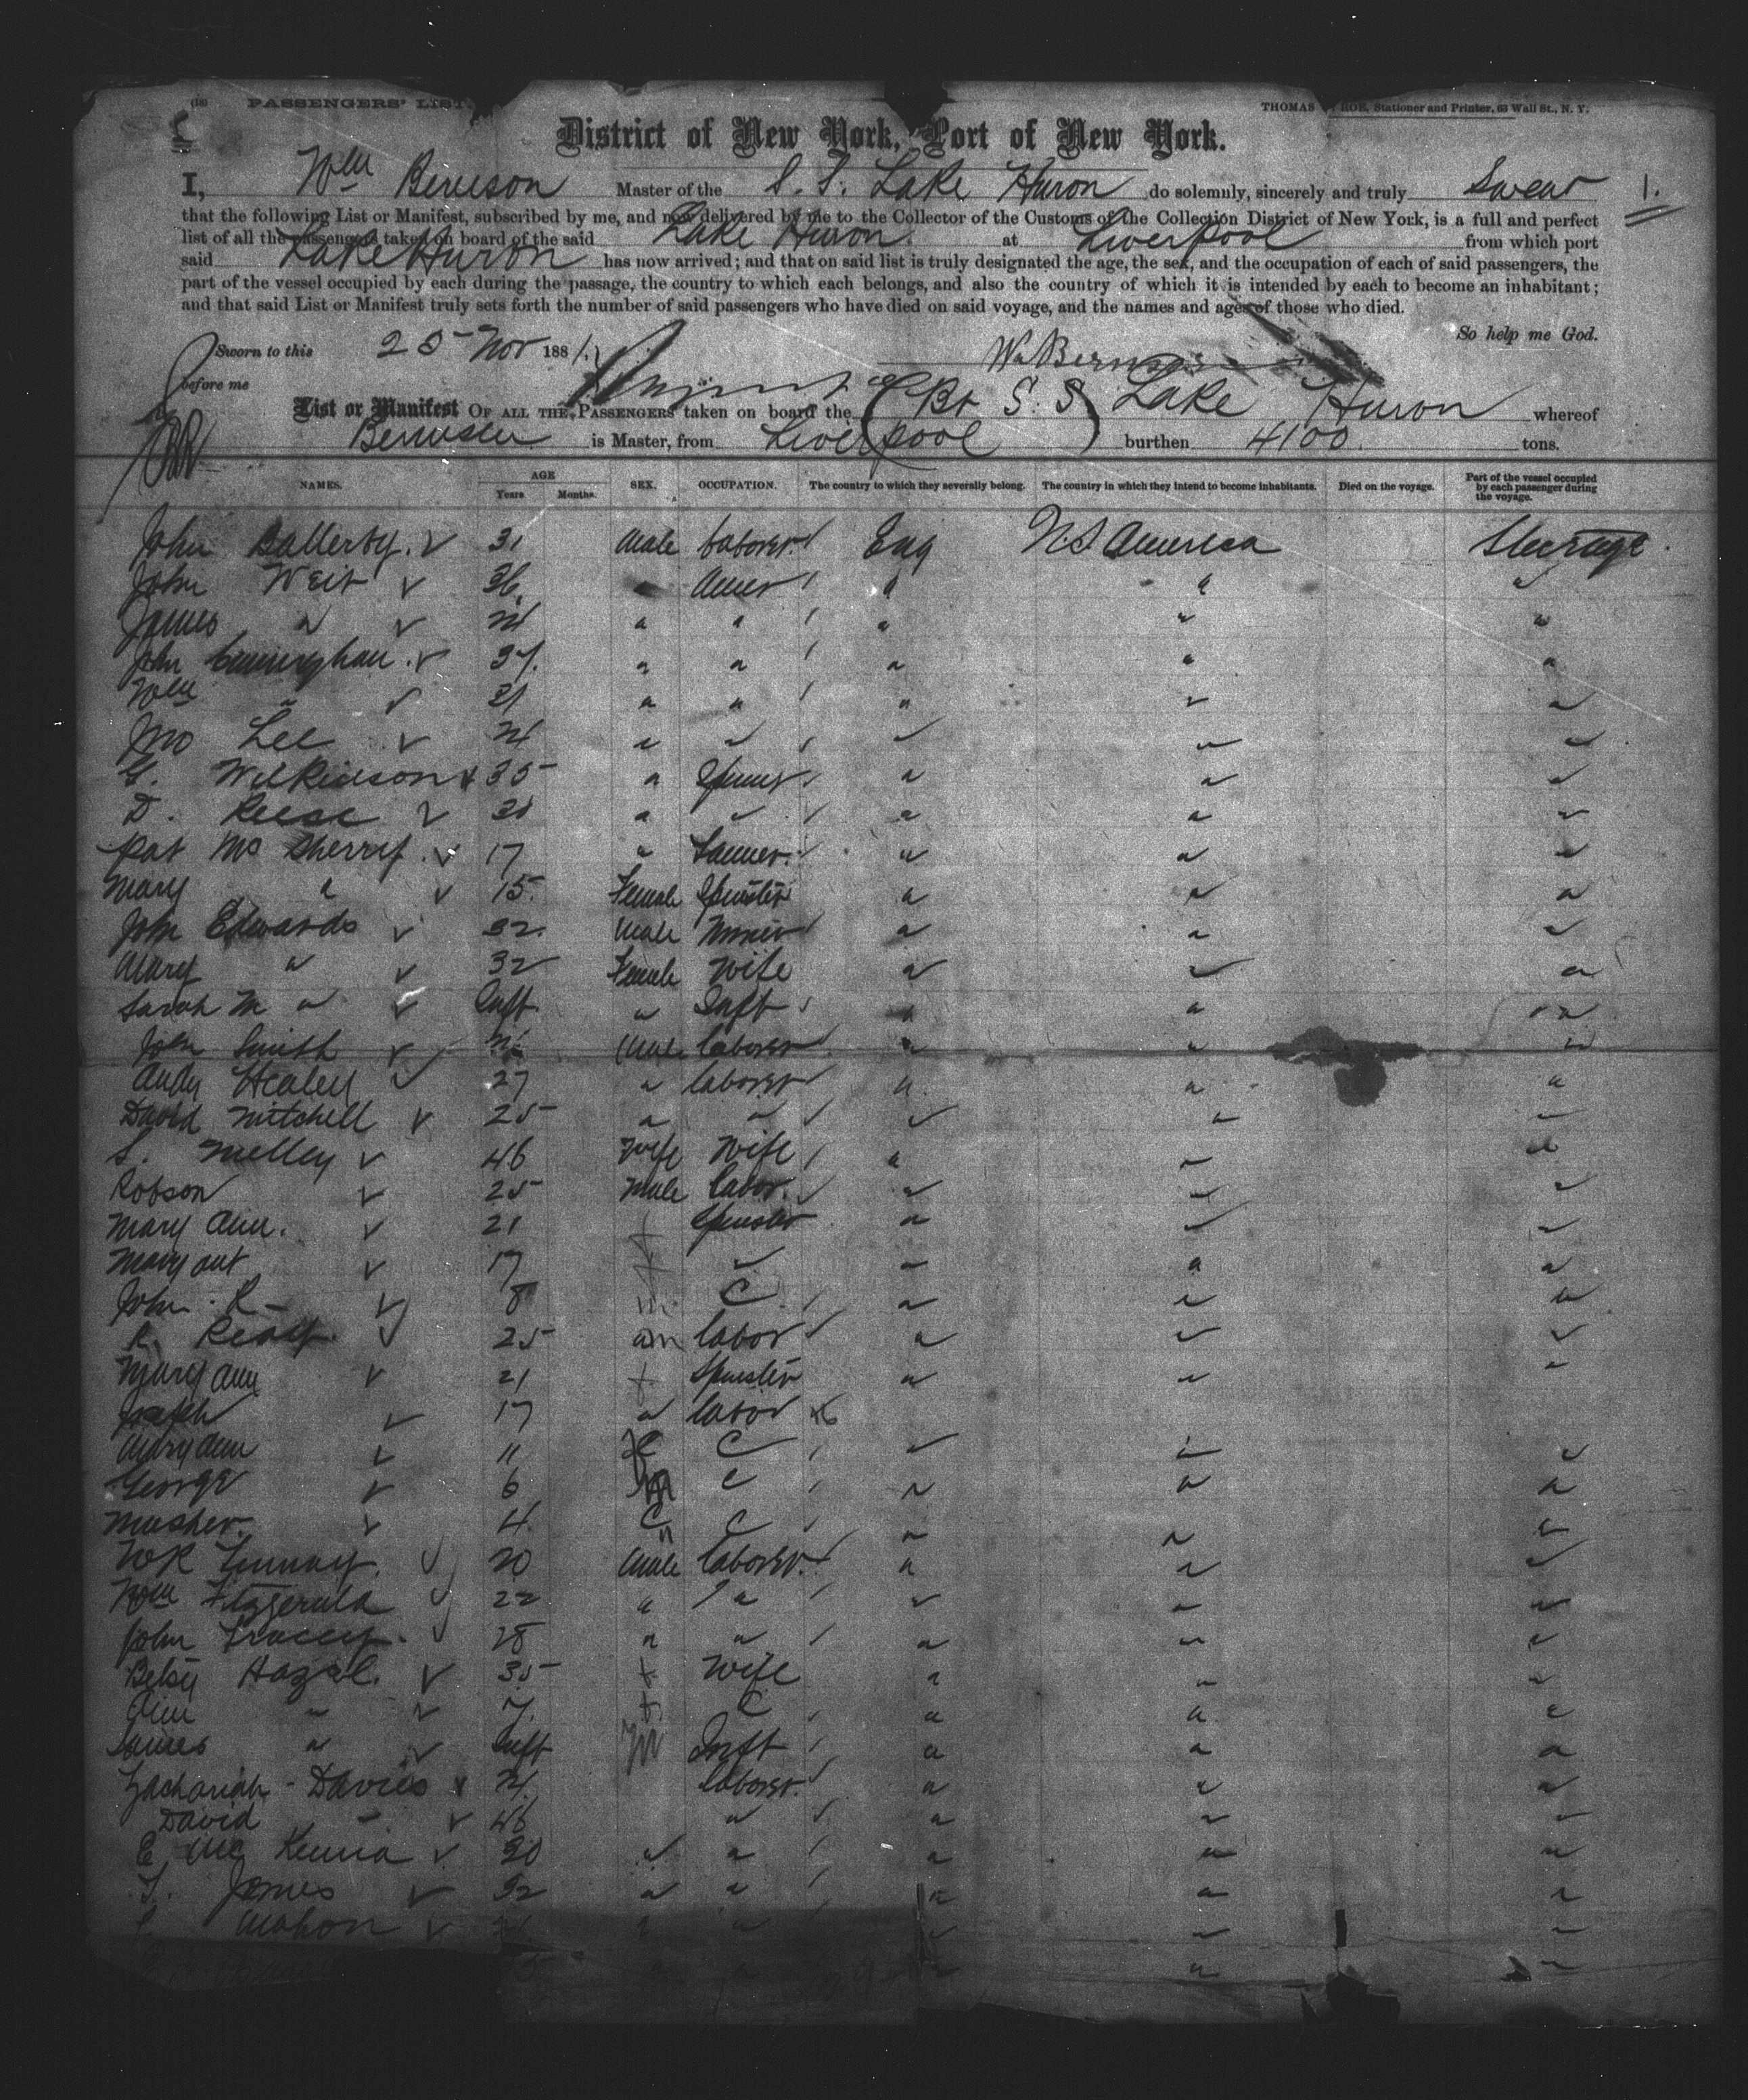 (18) PASSENGERS' LIST.
THOMAS ROE, Stationer and Printer, 63 Wall St., N. Y.
District of New York, Port of New York.
I, Wm Bernson Master of the S. S. Lake Huron do solemnly, sincerely and truly Swear 1.
that the following List or Manifest, subscribed by me, and now delivered by me to the Collector of the Customs of the Collection District of New York, is a full and perfect
list of all the passengers taken on board of the said Lake Huron at Liverpool from which port
said Lake Huron has now arrived; and that on said list is truly designated the age, the sex, and the occupation of each of said passengers, the
part of the vessel occupied by each during the passage, the country to which each belongs, and also the country of which it is intended by each to become an inhabitant;
and that said List or Manifest truly sets forth the number of said passengers who have died on said voyage, and the names and ages of those who died.
So help me God.
Sworn to this 25 Nov 1881.
before me
List or Manifest OF ALL THE PASSENGERS taken on board the (Br S. S) Lake Huron whereof
is Master, from Liverpool burthen 4100 tons.
NAMES. AGE Years Months. SEX. OCCUPATION. The country to which they severally belong. The country in which they intend to become inhabitants. Died on the voyage. Part of the vessel occupied by each passenger during the voyage.
John Ballerby. 31 Male Laborer Eng N.S. America Steerage.
John Weir 36 " " "
James " 24 " " " " "
John Cunningham 37. " " " " "
Wm " 21 " " " " "
Jno Lee 24 " " " " "
G. Wilkinson 35 " " " "
D. Reese " " " " "
Pat Mc Sherry. 17 " " " "
Mary " 15. Female Spinster " " "
John Edwards 32. Male Miner " " "
Mary " 32 Female Wife " " "
Sarah M " Inft. " Inft " " "
John Smith Male Laborer " " "
Andy Healey 27 " laborer " " "
David Mitchell 25 " " " " "
S. Melley 46 Wife Wife " " "
Robson 25 Male labor. " " "
Mary Ann. 21 f Spinster " " "
Mary 17 f " " " "
John R 8 m. C " " "
R. Ready. 25 m labor " " "
Mary Ann 21 f Spinster " " "
Joseph 17 " labor
Mary Ann 11 C " " "
George 6 M C " " "
4 C " " "
20 Male laborer. " " "
Wm Fitzgerald 22 " " " " "
John Tracey. 28 " " " " "
Betsy Hazel. 35 f Wife " " "
Ann " 7. f. C " " "
James " Inft M Inft " " "
Zachariah - Davies 24. laborer. " " "
David " 46 " " " "
E Mc Kenna " " " " "
T. James 32 " " " " "
Mahon " " " " "